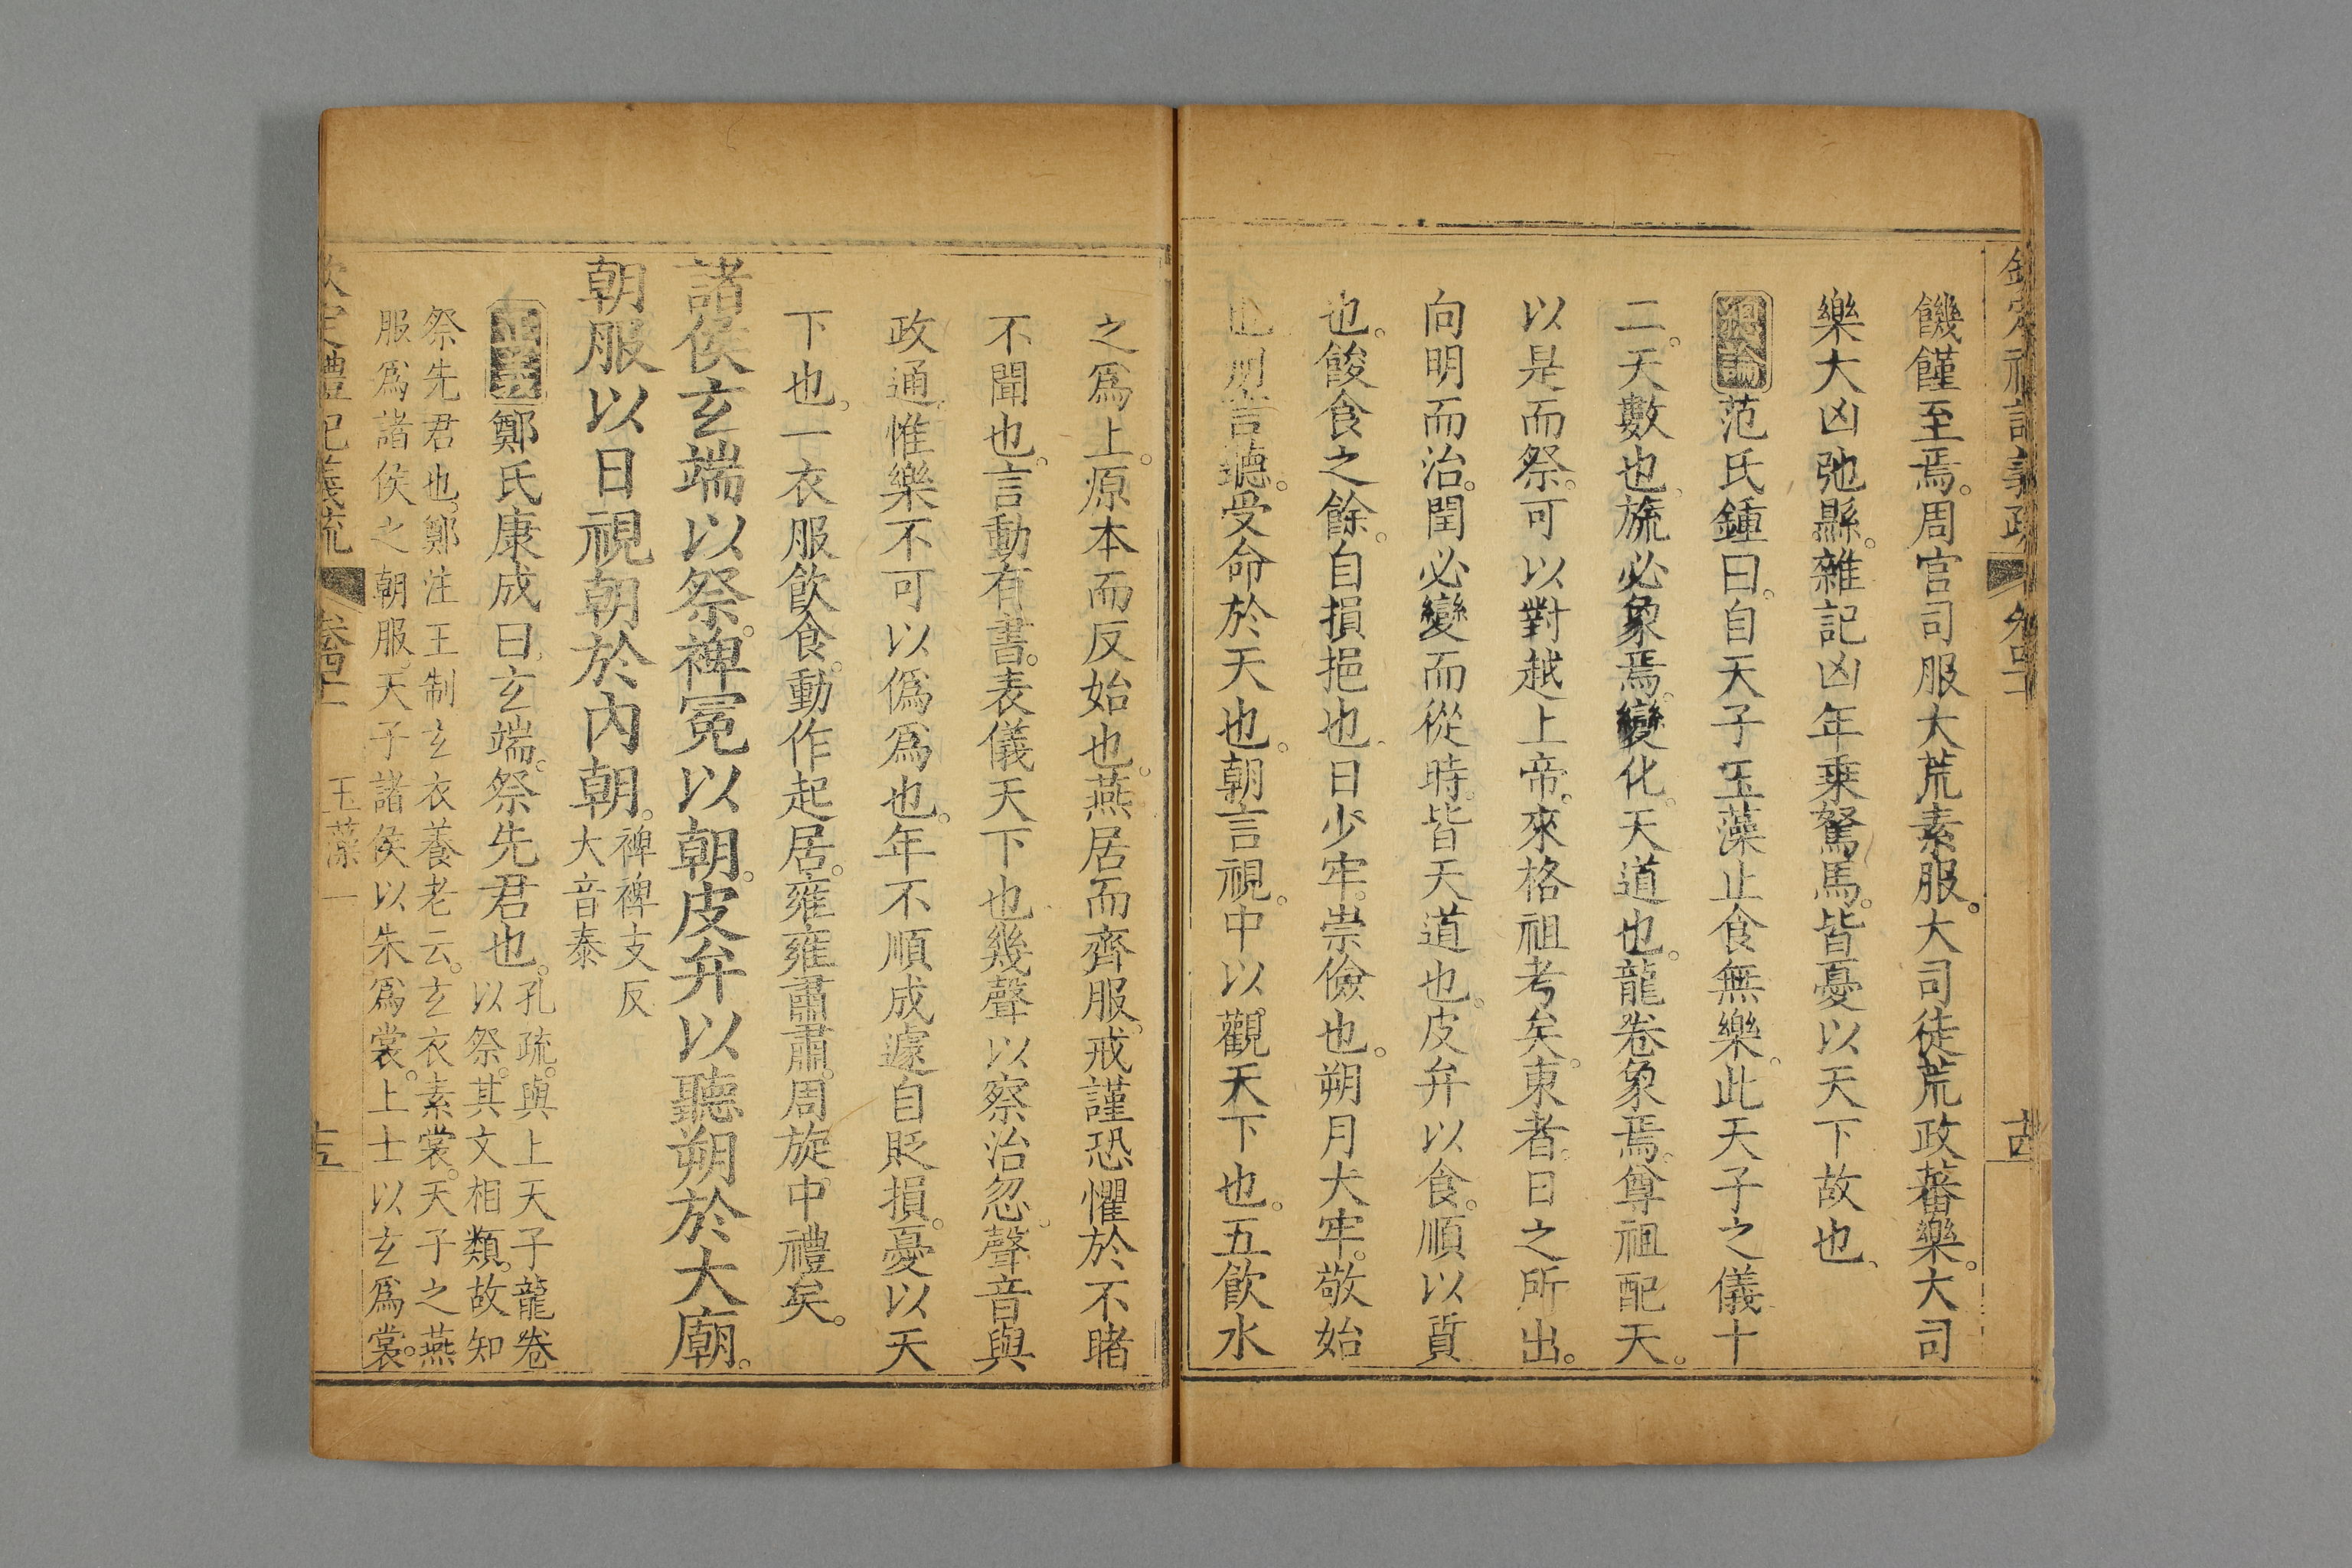 饑饉至焉。周官司服大荒素服。大司徒荒政蕃樂。大司
樂大凶弛縣。雜記凶年乘駑馬。皆憂以天下故也。
總論范氏鍾曰。自天子玉藻止食無樂。此天子之儀十
二。天數也。旒必象焉。變化。天道也。龍卷象焉。尊祖配天。
以是而祭。可以對越上帝。來格祖考矣。東者。日之所出。
向明而治。閏必變而從時。皆天道也。皮弁以食。順以質
也。餕食之餘。自損挹也。日少牢。崇儉也。朔月大牢。敬始
也。朔言聽。受命於天也。朝言視。中以觀天下也。五飲水
之爲上。原本而反始也。燕居而齊服。戒謹恐懼於不睹
不聞也。言動有書。表儀天下也。幾聲以察治忽。聲音與
政通。惟樂不可以僞爲也。年不順成。遽自貶損。憂以天
下也。一衣服飲食。動作起居。雍雍肅肅。周旋中禮矣。
諸侯玄端以祭。裨冕以朝。皮弁以聽朔於大廟。
朝服以日視朝於內朝。裨禆支反
大音泰
正義鄭氏康成曰。玄端。祭先君也。孔疏。與上天子龍卷
以祭。其文相類。故知
祭先君也。鄭注王制玄衣養老云。玄衣素裳。天子之燕
服爲諸侯之朝服。天子諸侯以朱爲裳。上士以玄爲裳。
欽定禮記義疏 卷四十一 玉藻一 十五